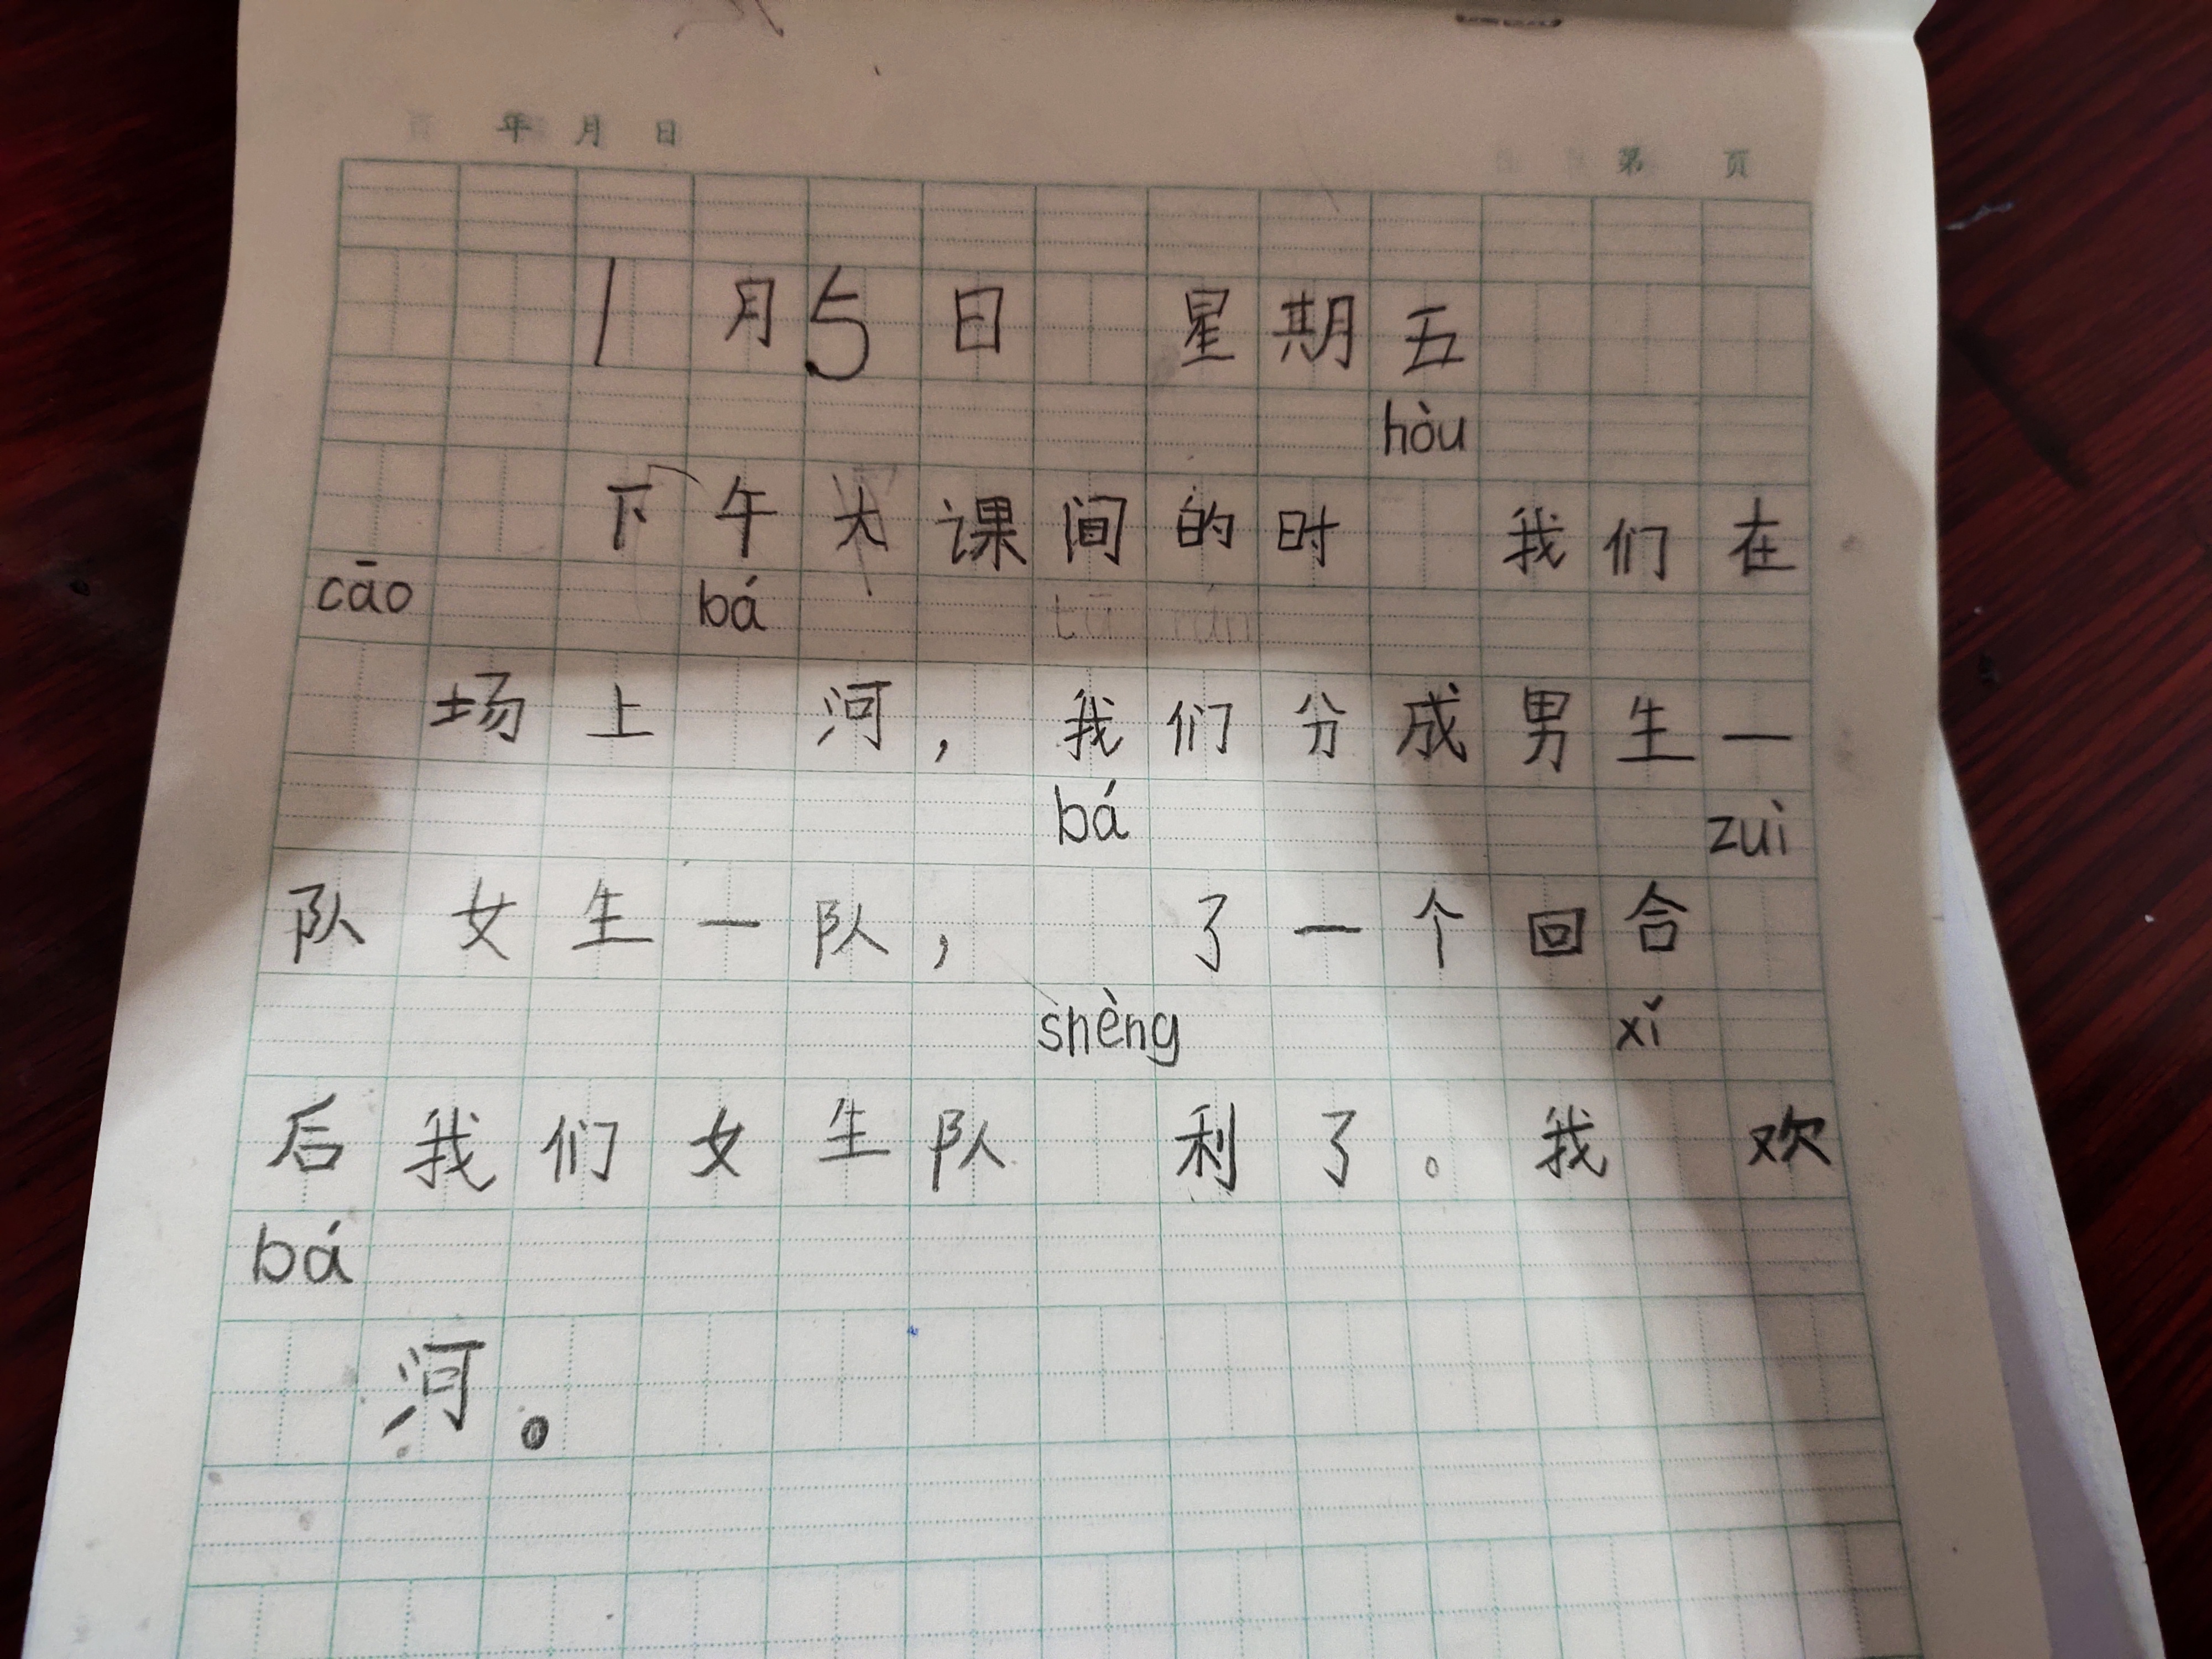 年 月 日
第 页
1月5日 星期五
hòu
下午大课间的时 我们在
cāo bá
场上 河，我们分成男生一
bá zuì
队女生一队， 了一个回合
shèng xǐ
后我们女生队 利了。我 欢
bá
河。